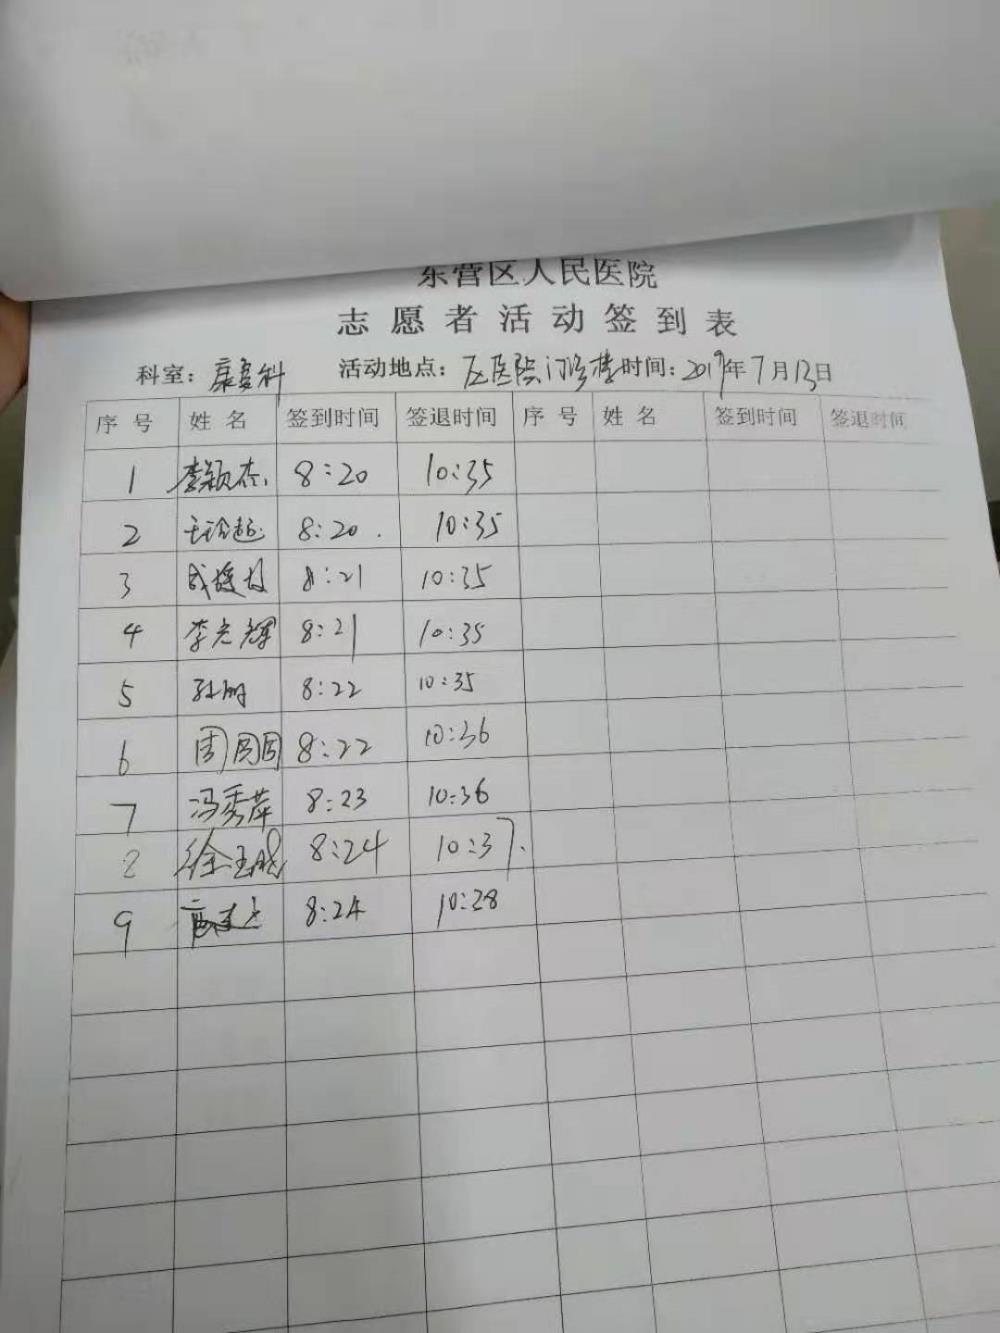 东营区人民医院
志愿者活动签到表
科室：康复科 活动地点：区医院门诊楼 时间：2019年7月13日
序号 姓名 签到时间 签退时间 序号 姓名 签到时间 签退时间
1 李颖杰 8:20 10:35
2 8:20 10:35
3 8:21 10:35
4 李光辉 8:21 10:35
5 8:22 10:35
6 周圆圆 8:22 10:36
7 冯秀萍 8:23 10:36
8 徐玉 8:24 10:37
9 8:24 10:38